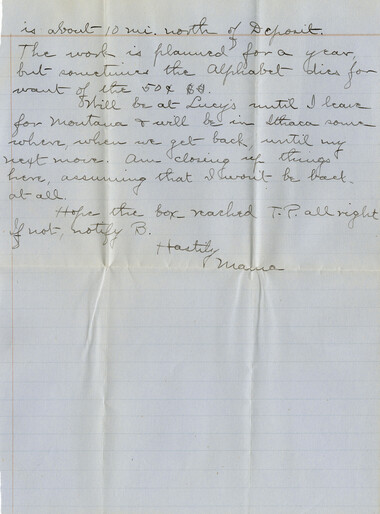 is about 10 mi. north of Deposit.
The work is planned for a year,
but sometimes the Alphabet dies for
want of the 50¢
Will be at Lucy's until I leave
for Montana & will be in Ithaca some
where, when we get back, until my
next move. Am closing up things
here, assuming that I won't be back
at all.
Hope the box reached T.P. all right
If not, notify B.
Hastily
Mama